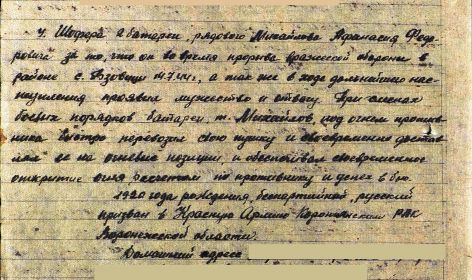 4. Шофера 2 батареи, рядового Михайлова Афанасия Федо-
ровича за то, что он во время прорыва вражеской обороны в
районе с. 14.7.44г., а так же в ходе дальнейшего нас-
тупления проявил мужество и отвагу. При сменах
боевых порядков батареи т. Михайлов, под огнем против-
ника быстро перевозил свою пушку и своевременно достав-
лял ее на огневые позиции, и обеспечивал своевременное
открытие огня расчетом по противнику и успех в бою.
1920 года рождения, беспартийный, русский
призван в Красную Армию РВК
Воронежской области.
Домашний адрес: